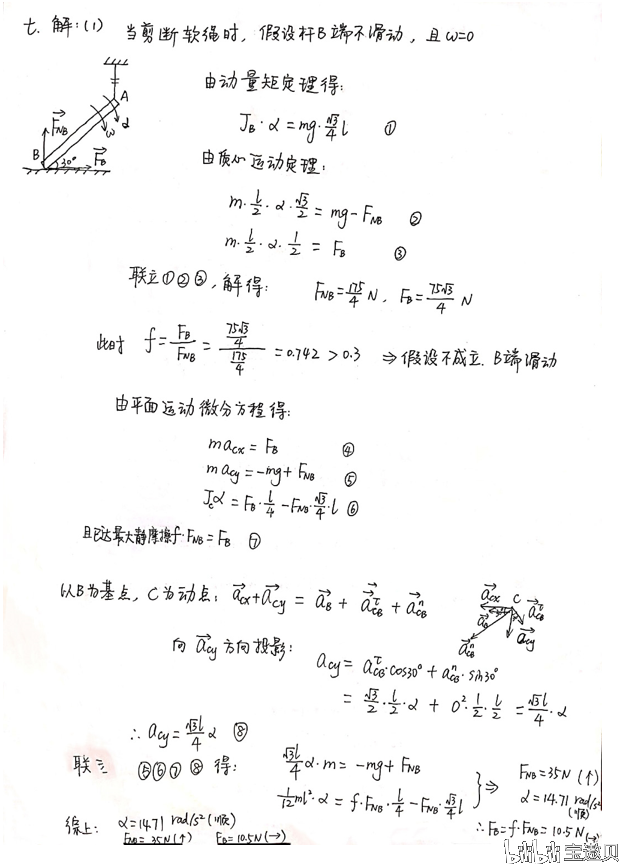 七. 解:(1) 当剪断软绳时, 假设杆B端不滑动, 且ω=0
A
α
ω
F_NB
B
30°
F_B
由动量矩定理得:
J_B·α = mg·√3/4 l ①
由质心运动定理:
m·l/2·α·√3/2 = mg - F_NB ②
m·l/2·α·1/2 = F_B ③
联立①②③, 解得: F_NB = 175/4 N, F_B = 75√3/4 N
此时 f = F_B/F_NB = (75√3/4)/(175/4) = 0.742 > 0.3 ⇒ 假设不成立. B端滑动
由平面运动微分方程得:
m a_cx = F_B ④
m a_cy = -mg + F_NB ⑤
J_c α = F_B·l/4 - F_NB·√3/4·l ⑥
且已达最大静摩擦 f·F_NB = F_B ⑦
以B为基点, C为动点: a_cx + a_cy = a_B + a_CB^τ + a_CB^n
a_cx C a_CB^τ
a_B
a_cy
a_CB^n
向 a_cy 方向投影: a_cy = a_CB^τ·cos30° + a_CB^n·sin30°
= √3/2·l/2·α + 0²·1/2·l/2 = √3l/4·α
∴ a_cy = √3l/4 α ⑧
联立 ⑤⑥⑦⑧ 得: √3l/4 α·m = -mg + F_NB
1/12 ml²·α = f·F_NB·l/4 - F_NB·√3/4 l
⇒ F_NB = 35N (↑)
α = 14.71 rad/s² (顺)
∴ F_B = f·F_NB = 10.5N (→)
综上: α = 14.71 rad/s² (顺)
F_NB = 35N (↑) F_B = 10.5N (→)